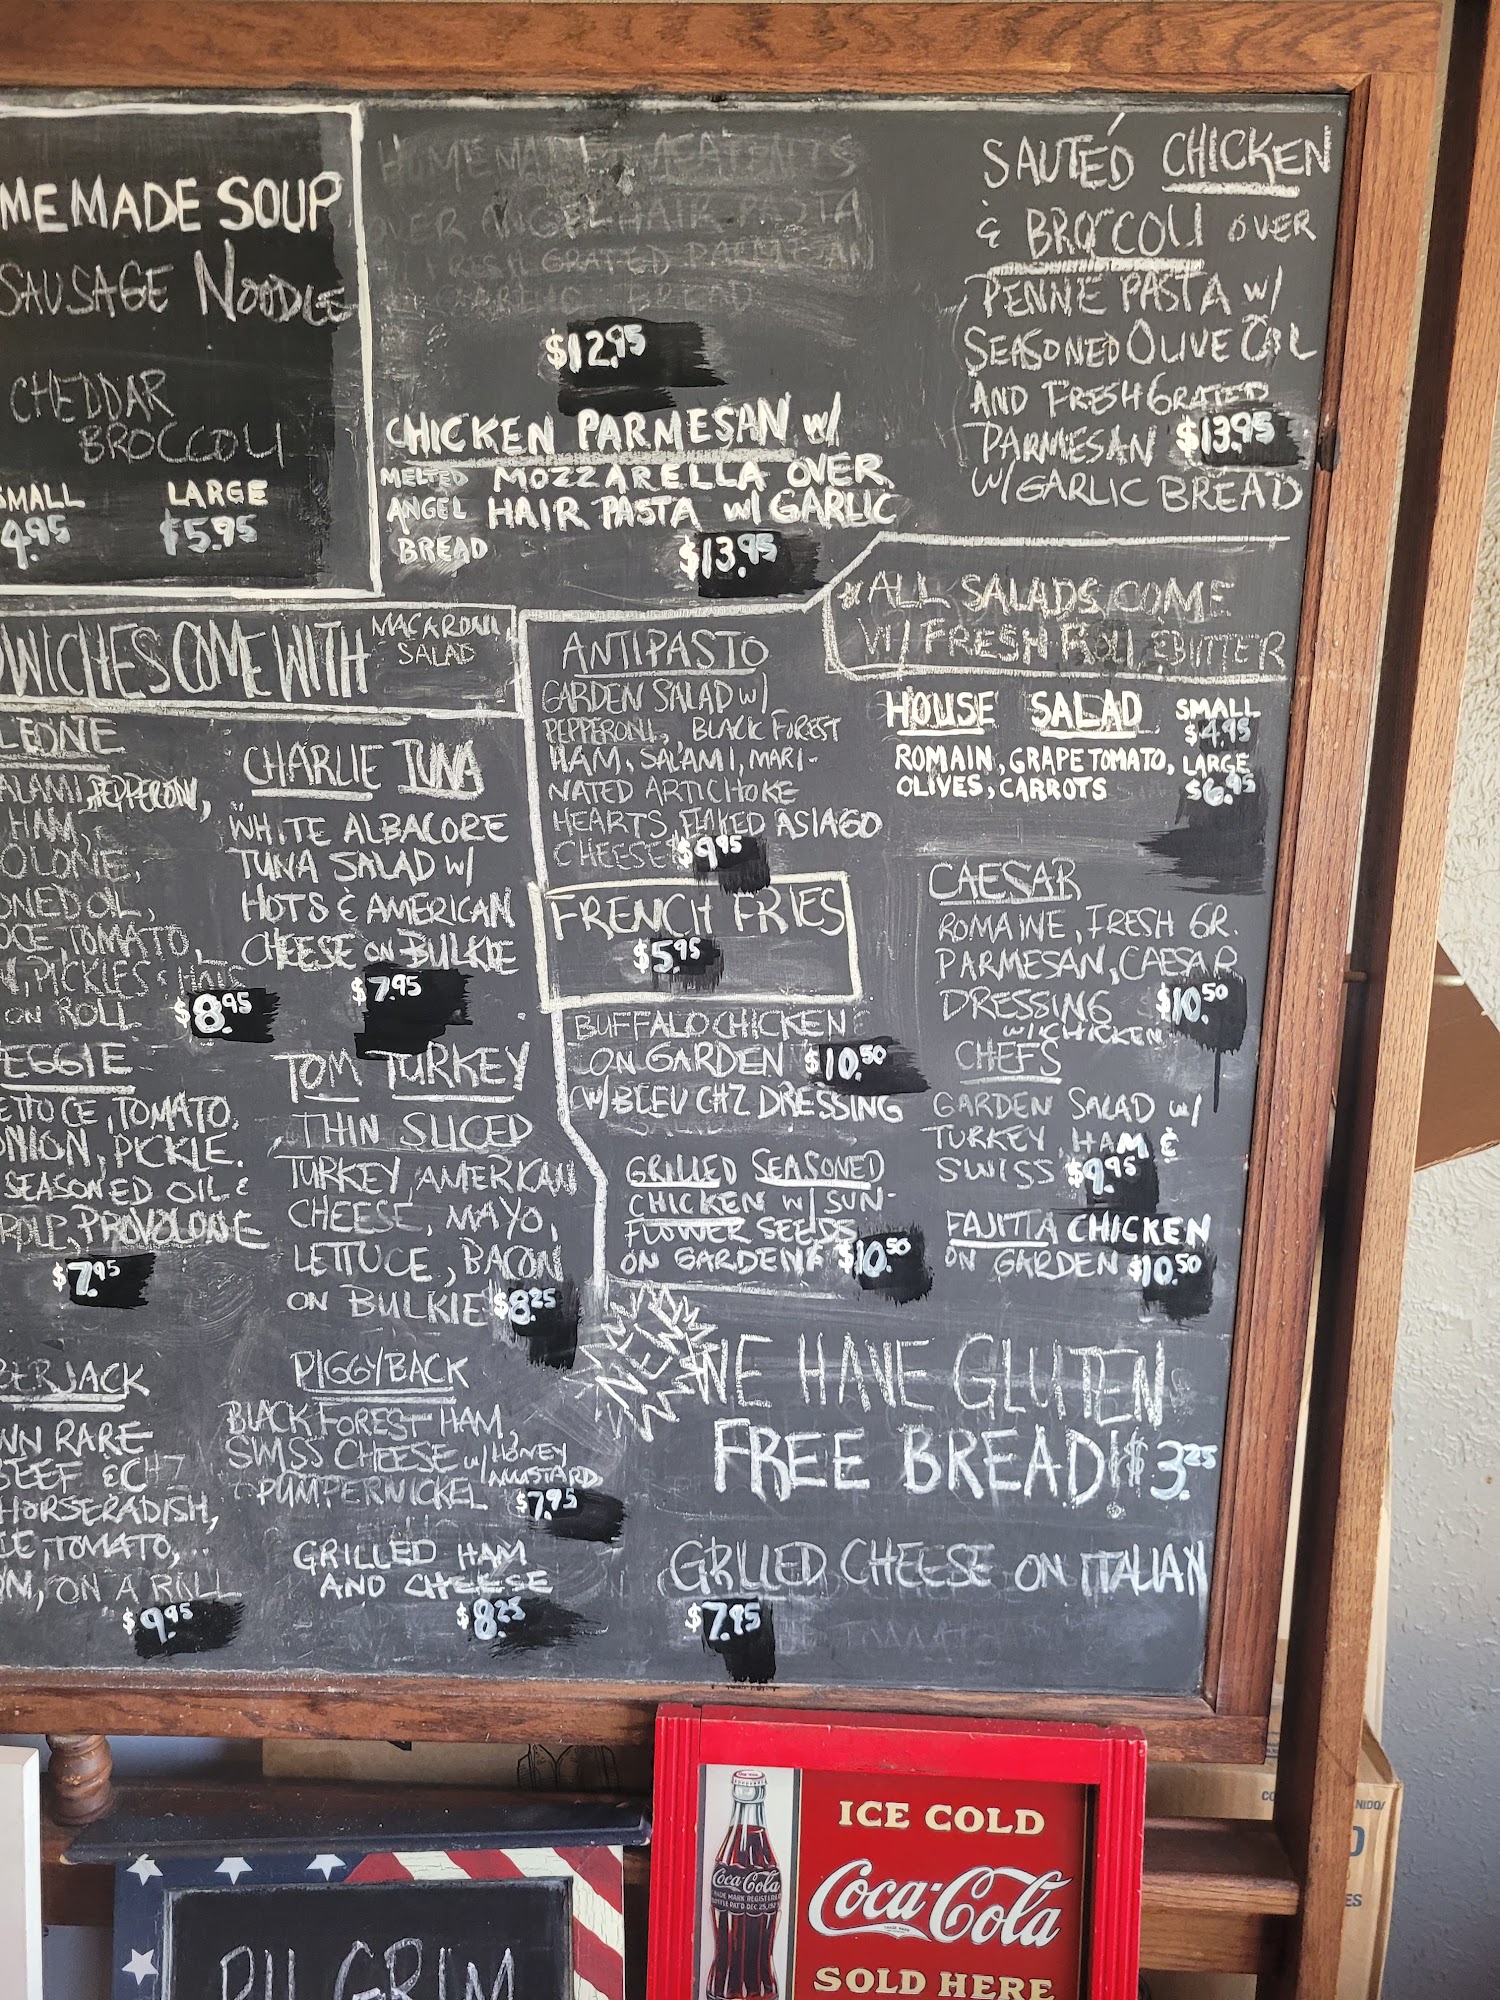 MEMADE SOUP
SAUSAGE NOODLE
CHEDDAR
BROCCOLI
SMALL LARGE
4.95 $5.95
HOMEMADE MEATBALLS
OVER ANGEL HAIR PASTA
W/ FRESH GRATED PARMESAN
GARLIC BREAD
$12.95
CHICKEN PARMESAN W/
MELTED MOZZARELLA OVER
ANGEL HAIR PASTA W/ GARLIC
BREAD
$13.95
SAUTÉD CHICKEN
& BROCCOLI OVER
PENNE PASTA W/
SEASONED OLIVE OIL
AND FRESH GRATED
PARMESAN $13.95
W/ GARLIC BREAD
WICHES COME WITH MACARONI
SALAD
LEONE
ALAMI, PEPPERONI,
HAM,
OLONE,
ONED OIL,
UCE, TOMATO,
N, PICKLES & HOTS
ON ROLL $8.95
CHARLIE TUNA
WHITE ALBACORE
TUNA SALAD W/
HOTS & AMERICAN
CHEESE ON BULKIE
$7.95
EGGIE
ETTUCE, TOMATO,
ONION, PICKLE.
SEASONED OIL &
PROVOLONE
$7.95
TOM TURKEY
THIN SLICED
TURKEY, AMERICAN
CHEESE, MAYO,
LETTUCE, BACON
ON BULKIE $8.25
BERJACK
WN RARE
BEEF & CHZ
HORSERADISH,
CE, TOMATO,
ON, ON A ROLL
$9.95
PIGGYBACK
BLACK FOREST HAM,
SWISS CHEESE W/ HONEY
MUSTARD
PUMPERNICKEL $7.95
GRILLED HAM
AND CHEESE
$8.25
ANTIPASTO
GARDEN SALAD W/
PEPPERONI, BLACK FOREST
HAM, SALAMI, MARI-
NATED ARTICHOKE
HEARTS, FLAKED ASIAGO
CHEESE $9.95
FRENCH FRIES
$5.95
BUFFALO CHICKEN
ON GARDEN $10.50
W/ BLEU CHZ DRESSING
GRILLED SEASONED
CHICKEN W/ SUN-
FLOWER SEEDS
ON GARDEN $10.50
*ALL SALADS COME
W/ FRESH ROLL & BUTTER
HOUSE SALAD SMALL
$4.95
ROMAIN, GRAPE TOMATO, LARGE
OLIVES, CARROTS $6.95
CAESAR
ROMAINE, FRESH GR.
PARMESAN, CAESAR
DRESSING $10.50
W/ CHICKEN
CHEFS
GARDEN SALAD W/
TURKEY, HAM &
SWISS $9.95
FAJITTA CHICKEN
ON GARDEN $10.50
NEW WE HAVE GLUTEN
FREE BREAD! $3.25
GRILLED CHEESE ON ITALIAN
$7.95
PILGRIM
ICE COLD
Coca-Cola
SOLD HERE
Coca-Cola